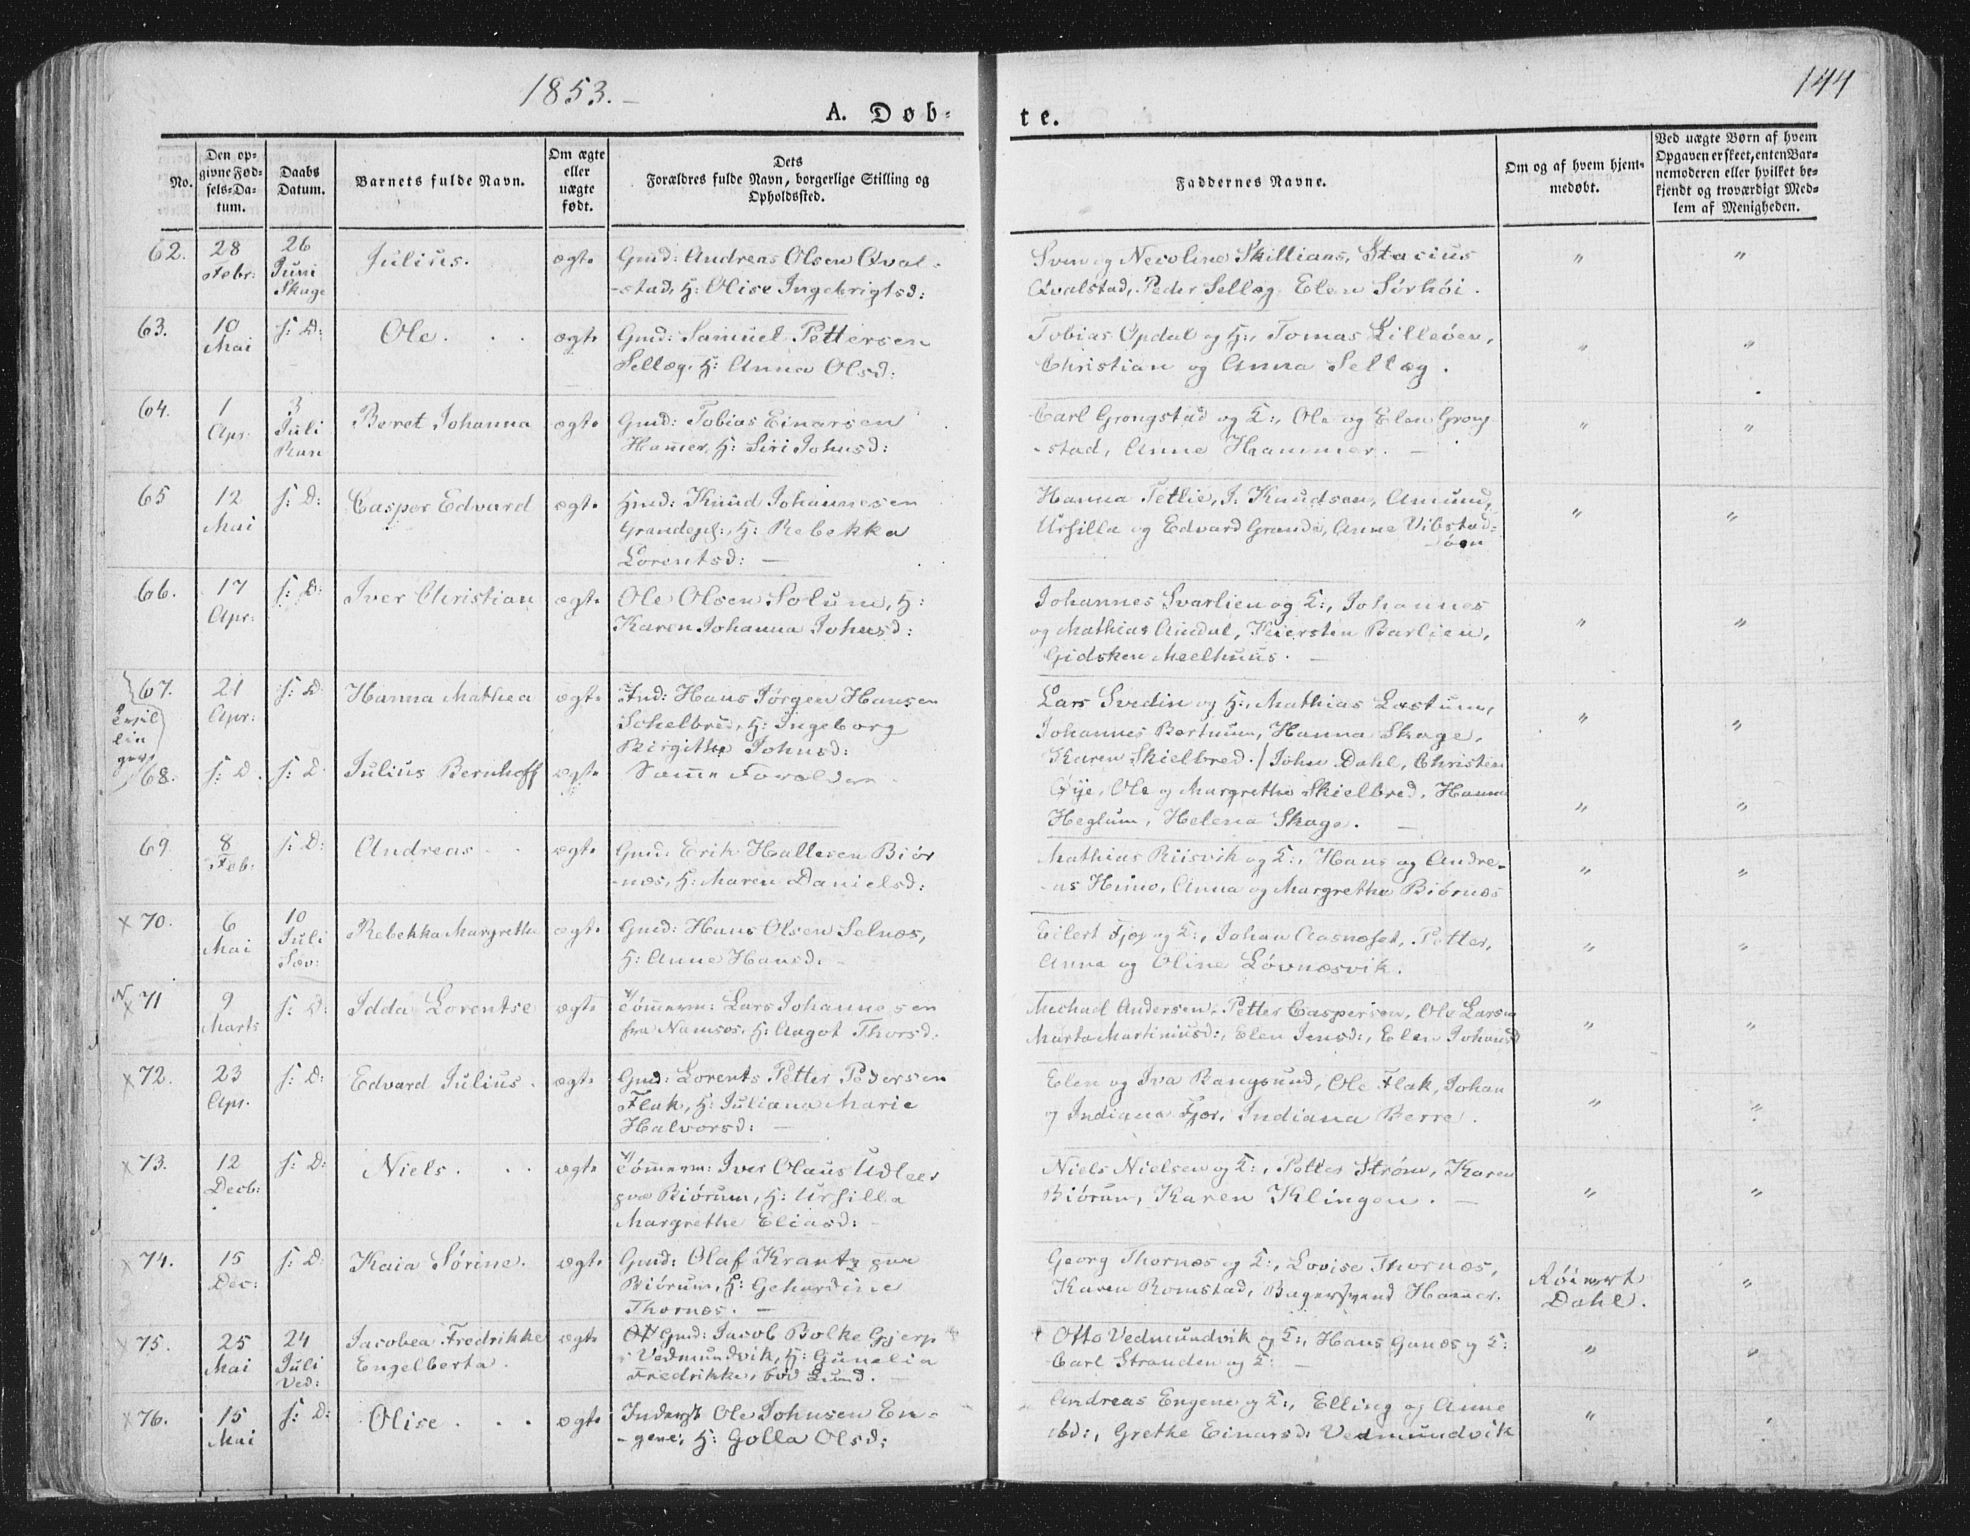 1853.
144
A. Døb-
te.
No.
Den op-
givne Fød-
sels-Da-
tum.
Daabs
Datum.
Barnets fulde Navn.
Om ægte
eller
uægte
født.
Dets
Forældres fulde Navn, borgerlige Stilling og
Opholdssted.
Faddernes Navne.
Om og af hvem hjem-
medøbt.
Ved uægte Børn af hvem
Opgaven er skeet, enten Bar-
nemoderen eller hvilket be-
kjendt og troværdigt Med-
lem af Menigheden.
62. 28 Febr: 26 Juni Skage Julius. ægte
Gmd: Andreas Olsen Qval-
-stad, H: Olise Ingebrigtsd:
Svend og Nicoline Skillians, Stacius
Qvalstad, Peder Sellæg Elen Sørhøi.
63. 10 Mai s: D: Ole. ægte
Gmd: Samuel Pettersen
Sellæg, H: Anna Olsd:
Tobias Opdal og H:, Tomas Lilleøen,
Christian og Anna Sellæg.
64. 1 Apr. 3 Juli Ran Beret Johanna ægte
Gmd: Tobias Einarsen
Hamer, H: Siri Johnsd:
Carl Grongstad og K:, Ole og Elen Grong
-stad, Anne Hammer.
65 12 Mai s: D: Casper Edvard ægte
Hmd: Knud Johannesen
Grandepl:, H: Rebekka
Lorentsd:
Hanna Tetlie, J. Knudsen, Amund,
Ursilla og Edvard Grande, Anne Vibstad-
øen
66. 17 Apr: s: D: Iver Christian ægte
Ole Olsen Solum, H:
Karen Johanna Johnsd:
Johannes Svarlien og K:, Johannes
og Mathias Aindal, Keiersten Barlien,
Gidsken Meelhuus.
67. 21 Apr: s: D Hanna Mathea ægte
Ind: Hans Jørgen Hansen
Schelbred, H: Ingeborg
Birgithe Johnsd:
Lars Svedin og H:, Mathias Lastum,
Johannes Bertnum, Hanna Skage,
Karen Skielbred. / John Dahl, Christen
68. s: D. s: D Julius Bernhoff ægte
Samme Forældre
Øye, Ole og Margrethe Skielbred, Hanna
Heglum, Helena Skage.
69 8 Feb: s: D: Andreas ægte
Gmd: Erik Hallesen Biør
-næs, H: Maren Danielsd:
Mathias Riisvik og K:, Hans og Andre-
-as Himo, Anna og Margrethe Biørnæs
x 70. 6 Mai 10 Juli Sæv: Rebekka Margrethe ægte
Gmd: Hans Olsen Selnæs,
H: Anne Hansd:
Eilert Fjær og K:, Johan Aasnæset, Petter,
Anna og Oline Løvnæsvik.
N x 71 9 Marts s: D: Idda Lorentse ægte
Tømmerm: Lars Johannesen
fra Namsos, H: Aagot Thorsd:
Michael Andersen, Petter Caspersen, Ole Larsen
Marta Martiniusd:, Elen Jensd:, Elen Johansd
x 72. 23 Apr. s: D: Edvard Julius. ægte
Gmd: Lorents Petter Pedersen
Flak, H: Juliana Marie
Halvorsd:
Elen og Iva Bangsund, Ole Flak, Johan
og Indiana Fjær, Indiana Berre.
x 73. 12 Decb: s: D: Niels. ægte
Tømmerm: Iver Olaus Udleer
paa Biørum, H: Ursilla
Margrethe Eliasd:
Niels Nielsen og K:, Petter Strøm, Karen
Biørum, Karen Klingen.
x 74. 15 Dec: s: D: Kaia Sørine. ægte
Gmd: Olaf Krantz paa
Biørum, H: Gehardine
Thornæs.
Georg Thornæs og K:, Lovise Thornæs,
Karen Romstad, Bagersvend Hamer.
Røinert
Dahl.
x 75. 25 Mai 24 Juli Ved: Jacobea Fredrikke
Engelberta. ægte
Gmd: Jacob Bolke Gjerp
i Vedmundvik, H: Gunelia
Fredrikke, fød Lund.
Otto Vedmundvik og K:, Hans Ganæs og K:
Carl Stranden og K:
x 76. 15 Mai s: D: Olise. ægte
Inderst Ole Johnsen En-
-gene, H: Golla Olsd:
Andreas Engene og K:, Elling og Anne
ibd:, Grethe Einarsd: Vedmundvik